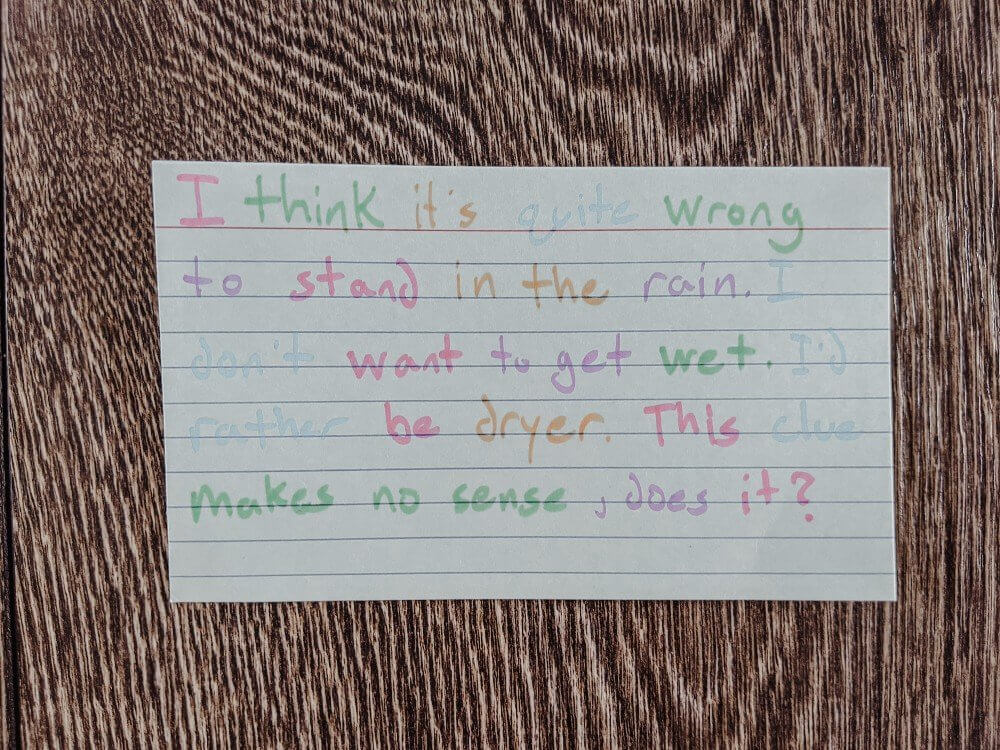 I think it's quite wrong
to stand in the rain. I
don't want to get wet. I'd
rather be dryer. This clue
makes no sense, does it?